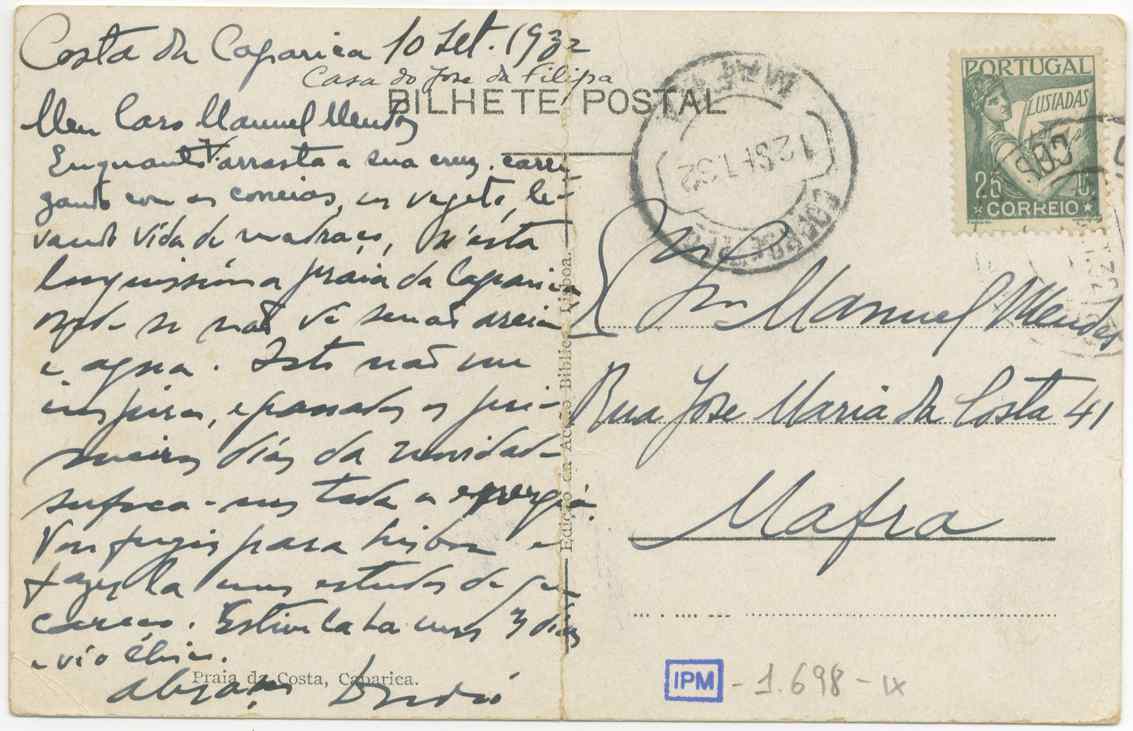 Costa da Caparica 10 Set. 1932
Casa do Jose da Filipa
BILHETE POSTAL
Meu Caro Manuel Mendes
Enquanto V. arrasta a sua cruz, carre-
gando com os correios, eu vegeto, le-
vando vida de madraço, n'esta
longuissima praia da Caparica
onde se não vê senão areia
e agua. Isto não me
inspira, e passados os pri-
meiros dias da novidade
sufoca-nos toda a energia.
Vou fugir para Lisboa e
fazer la uns estudos de que
careço. Estive la ha uns 3 dias
e vi o
abraços
Praia da Costa, Caparica.
Edição da Acção Bíblica, Lisboa.
MAFRA
12 SET. 32
PORTUGAL
LUSIADAS
25 C.
CORREIO
Manuel Mendes
Rua Jose Maria da Costa 41
Mafra
IPM - 1.698 - IX